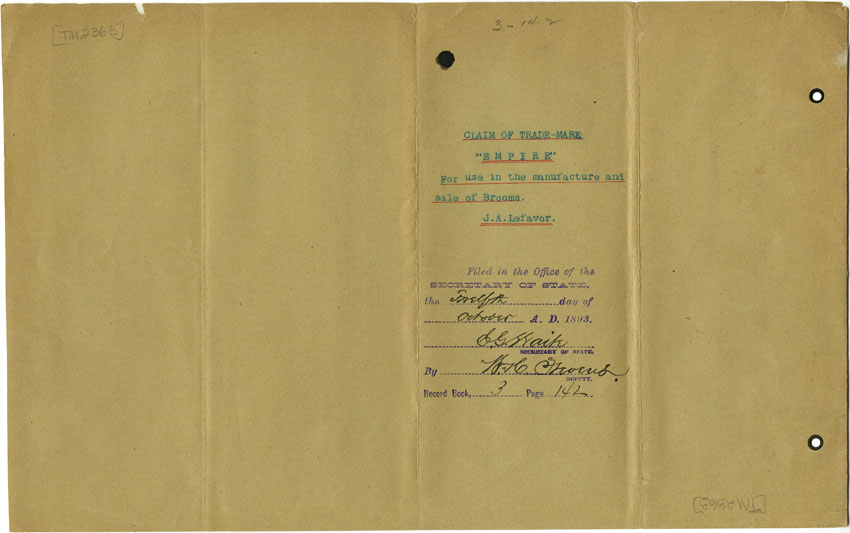 [TM2363]
3-142
CLAIM OF TRADE-MARK
"EMPIRE"
For use in the manufacture and
sale of Brooms.
J.A.Lefavor.
Filed in the Office of the
SECRETARY OF STATE,
the Twelfth day of
October A. D. 1893.
E.G. Waite
SECRETARY OF STATE.
By W.C. Stevens.
DEPUTY.
Record Book, 3 Page 142
[TM2363]